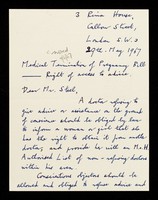 3 Rivia House,
Callow Street,
London S.W.3
29th. May 1967
Medical Termination of Pregnancy Bill
Right of access to advice.
Dear Mr. Steel,
A doctor refusing to
give advice or assistance on the grounds
of conscience should be obliged by law
to inform a woman or girl that she
has the right to obtain it from another
doctor, and provide her with an M.H.
Authorised List of non-refusing doctors
within his area.
Conscientious objectors should be
allowed and obliged to refuse advice and